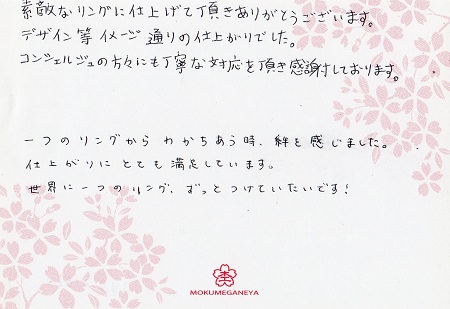 素敵なリングに仕上げて頂きありがとうございます。
デザイン等イメージ通りの仕上がりでした。
コンシェルジュの方々にも丁寧な対応を頂き感謝しております。
一つのリングから わかちあう時、絆を感じました。
仕上がりに とても 満足しています。
世界に一つのリング、ずっとつけていたいです!
MOKUMEGANEYA